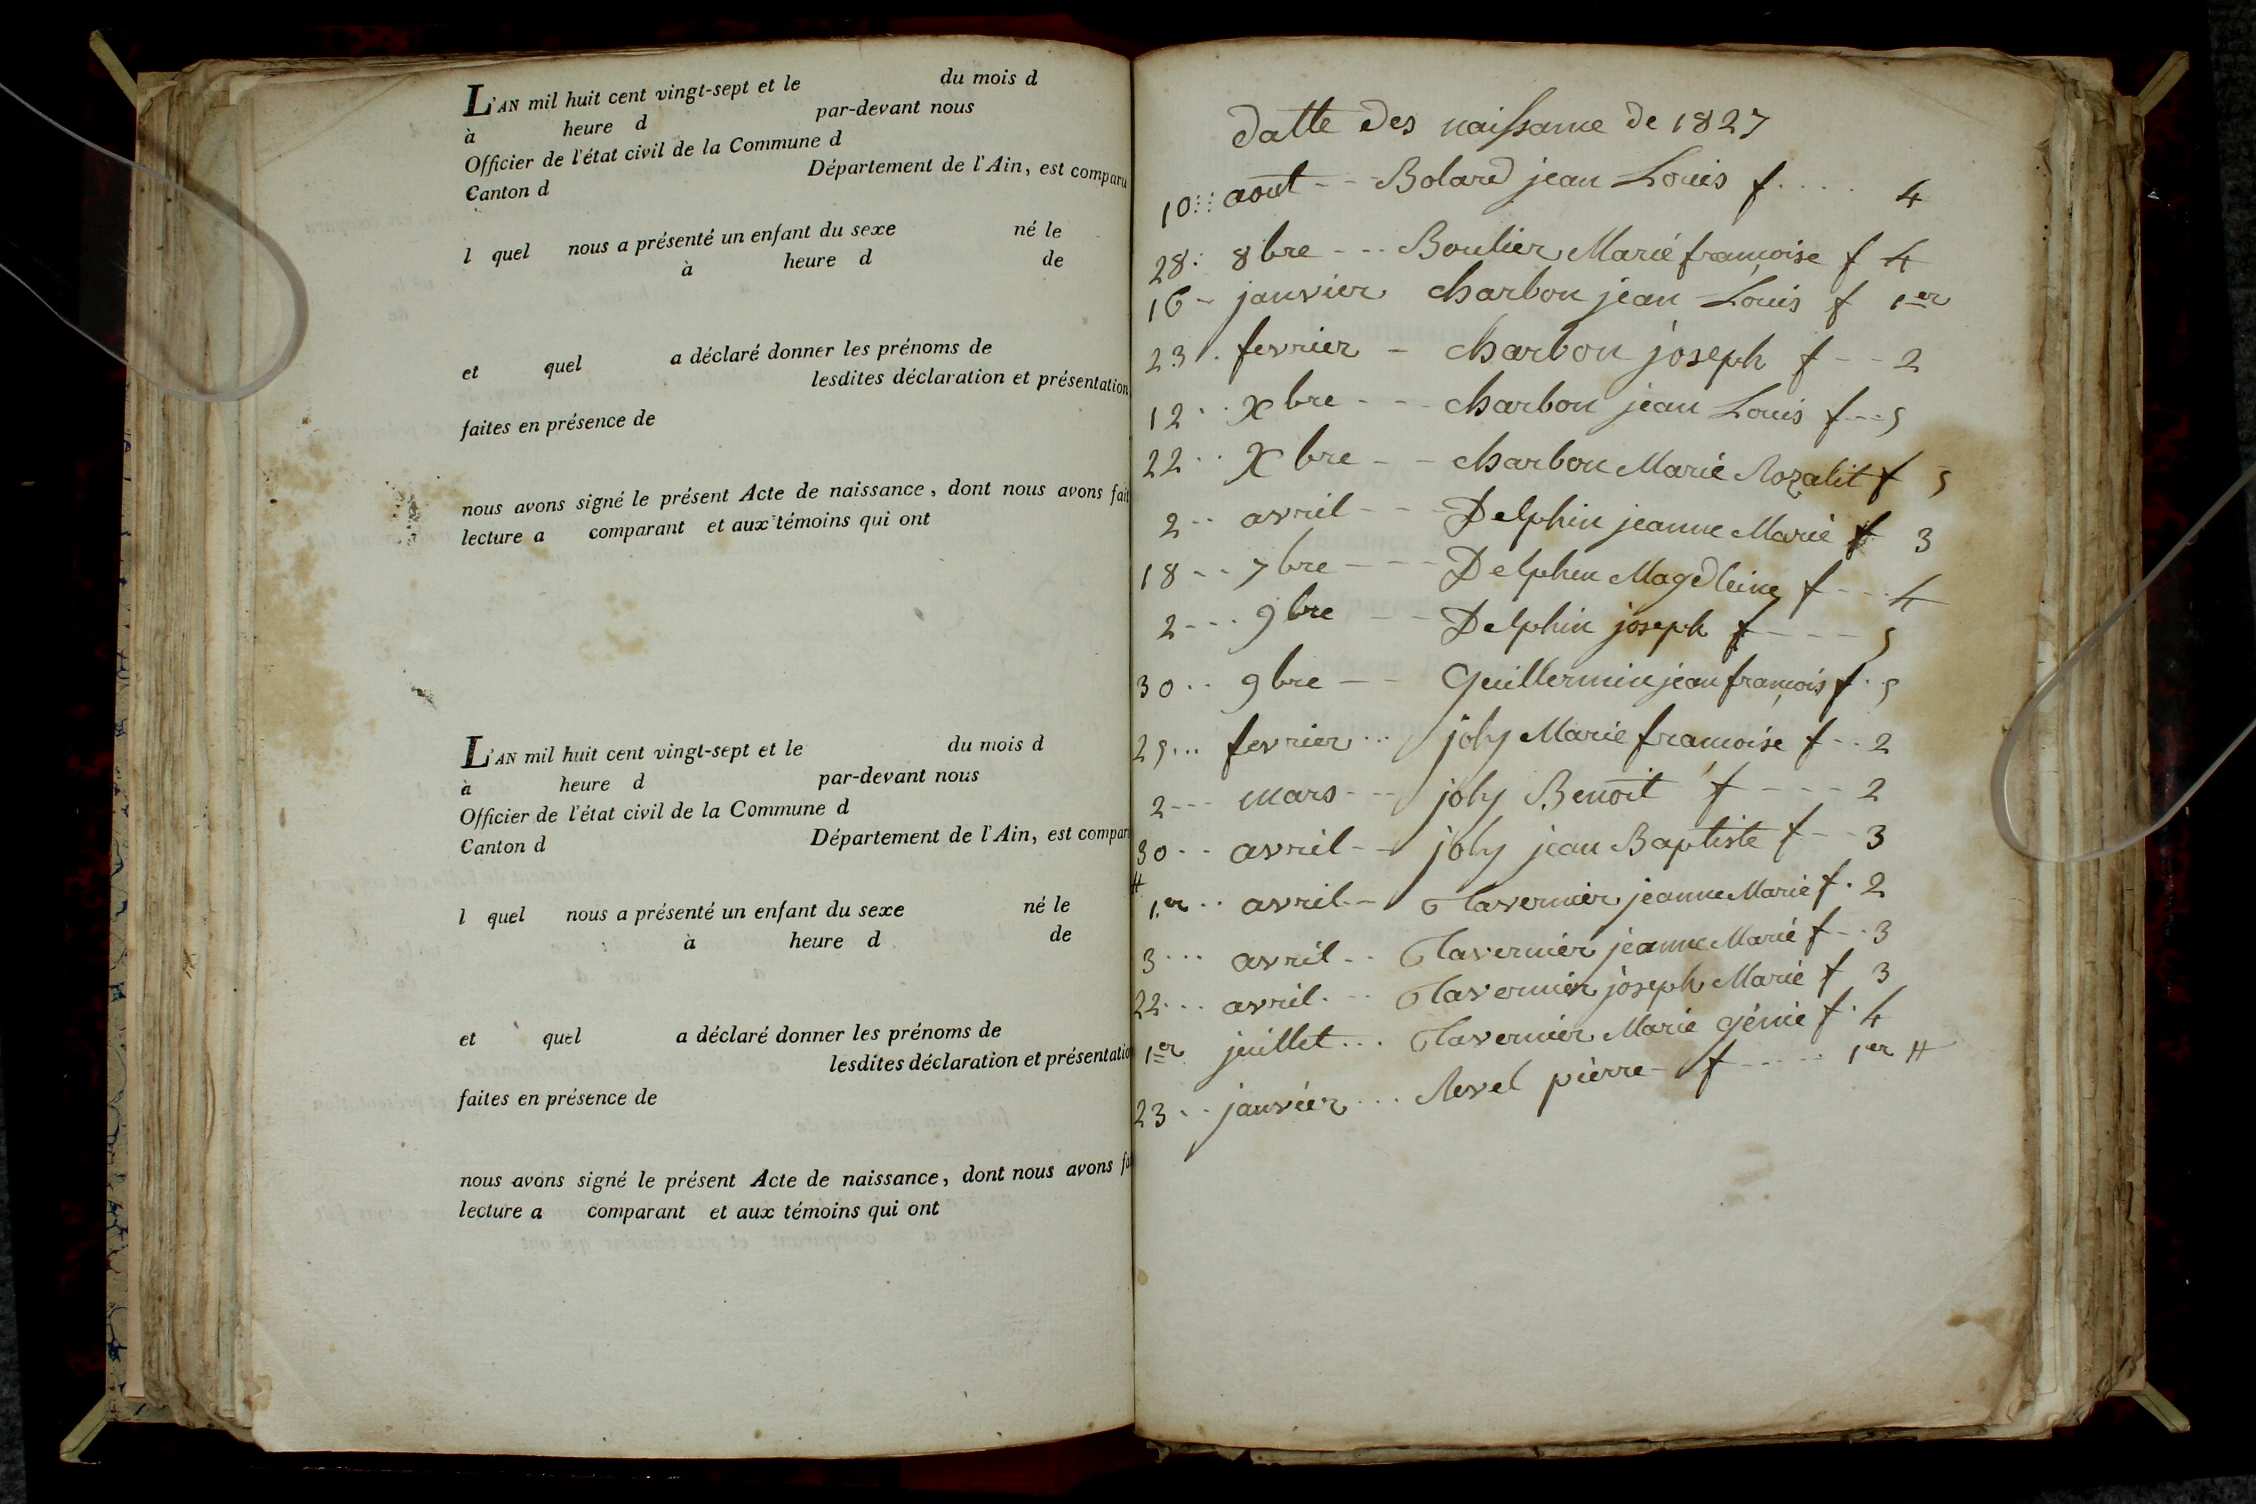 L'AN mil huit cent vingt-sept et le du mois d
à heure d par-devant nous
Officier de l'état civil de la Commune d
Canton d Département de l'Ain, est comparu
l quel nous a présenté un enfant du sexe né le
à heure d de
et quel a déclaré donner les prénoms de
lesdites déclaration et présentation
faites en présence de
nous avons signé le présent Acte de naissance, dont nous avons fait
lecture a comparant et aux témoins qui ont
L'AN mil huit cent vingt-sept et le du mois d
à heure d par-devant nous
Officier de l'état civil de la Commune d
Canton d Département de l'Ain, est compar
l quel nous a présenté un enfant du sexe né le
à heure d de
et quel a déclaré donner les prénoms de
lesdites déclaration et présentatio
faites en présence de
nous avons signé le présent Acte de naissance, dont nous avons fa
lecture a comparant et aux témoins qui ont
datte des naissance de 1827
10 août -- Bolard jean Louis f .... 4
28 8bre --- Boulier Marie françoise f 4
16 - janvier charbon jean Louis f 1er
23 . fevrier - charbon joseph f -- 2
12 .. Xbre --- charbon jean Louis f --- 5
22 .. Xbre -- charbon Marie Rozalit f 5
2 .. avril --- Delphin jeanne Marie f 3
18 -- 7bre --- Delphin Magdleine f --- 4
2 --- 9bre -- Delphin joseph f ---- 5
30 .. 9bre -- Guillermin jean françois f . 5
25 ... fevrier ... joly Marie françoise f -- 2
2 --- mars --- joly Benoit f ---- 2
30 .. avril -- joly jean Baptiste f -- 3
# 1er .. avril -- Tavernier jeanne Marie f . 2
3 ... avril .. Tavernier jeanne Marie f -- 3
22 ... avril ... Tavernier joseph Marie f 3
1er juillet ... Tavernier Marie génie f . 4
23 .. janvier ... Revel pierre - f ----- 1er #